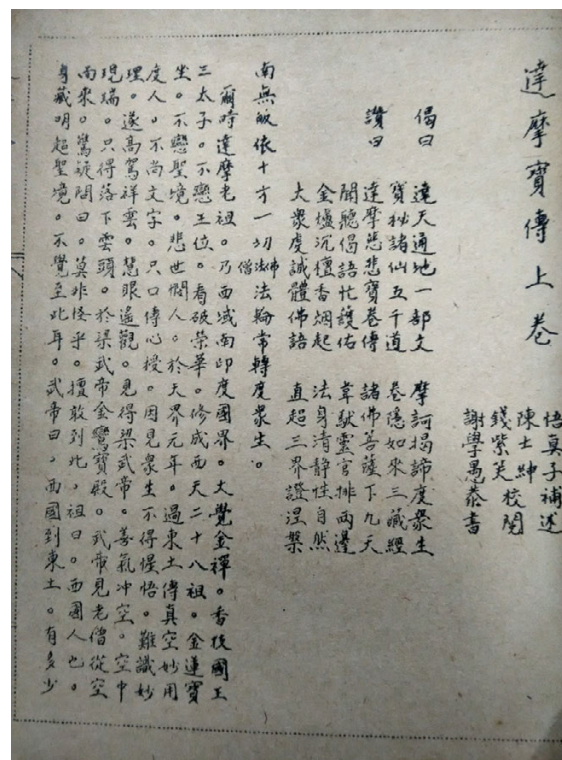 達摩寶傳上卷
悟真子補述
陳士紳
錢紫芝校閱
謝學愚恭書
偈曰
達天通地一部文　摩訶揭諦度衆生
寶秘諸仙五千道　卷隱如來三藏經
讚曰
達摩悲悲寶卷傳　諸佛菩薩下九天
聞聽偈語忙護佑　韋馱靈官排兩邊
金爐沉檀香烟起　法身清静性自然
大衆虔誠體佛語　直超三界證涅槃
南無皈依十方一切佛法僧法輪常轉度衆生。
爾時達摩老祖。乃西域南印度國界。大覺金禪。香後國王
三太子。不戀王位。看破荣華。修成西天二十八祖。金蓮寶
坐。不戀聖境。悲世間人。於天界元年。過東土傳真空妙用
度人。不尚文字。只口傳心授。因見衆生不得惺悟。難識妙
理。遂高駕祥雲。慧眼遥觀。見得梁武帝。善氣冲空。空中
現瑞。只得落下雲頭。於梁武帝金鸞寶殿。武帝見老僧從空
而來。驚疑問曰。莫非怪乎。擅敢到此，祖曰。西國人也。
身藏明超聖境。不覺至此耳。武帝曰，西國到東土。有多少